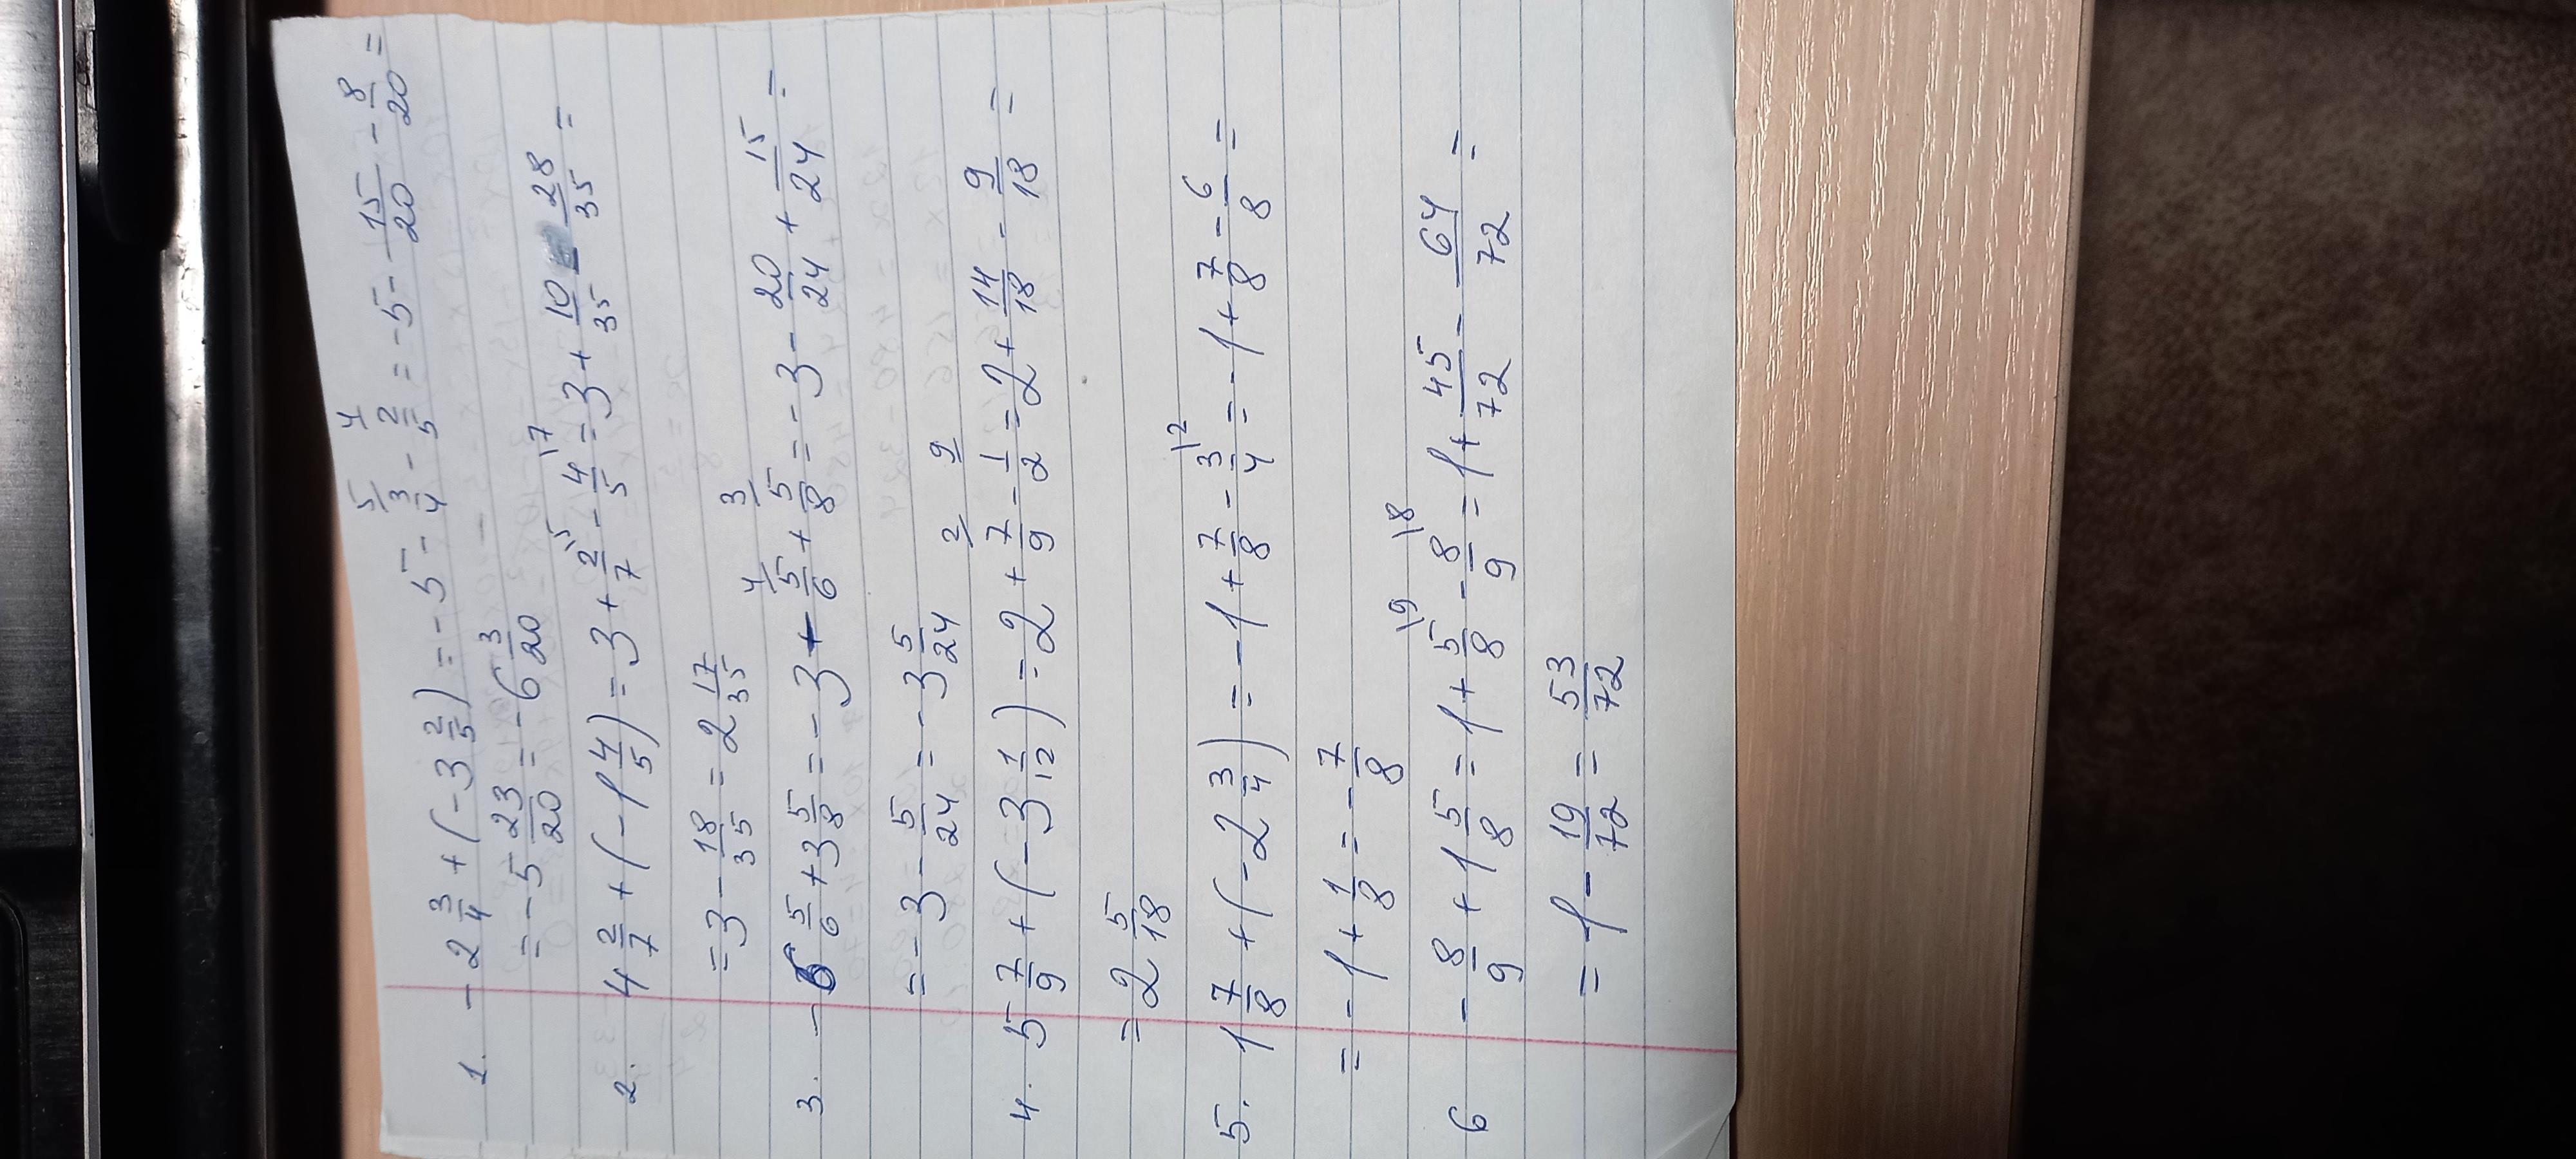 1. -2 3/4 + (-3 2/5) = -5 - 3/4 \5 - 2/5 \4 = -5 - 15/20 - 8/20 =
= -5 23/20 = -6 3/20
2. 4 2/7 + (-1 4/5) = 3 + 2/7 \5 - 4/5 \7 = 3 + 10/35 - 28/35 =
= 3 - 18/35 = 2 17/35
3. -6 5/6 + 3 5/8 = -3 - 5/6 \4 + 5/8 \3 = -3 - 20/24 + 15/24 =
= -3 - 5/24 = -3 5/24
4. 5 7/9 + (-3 1/12) = 2 + 7/9 \2 - 1/2 \9 = 2 + 14/18 - 9/18 =
= 2 5/18
5. 1 7/8 + (-2 3/4) = -1 + 7/8 - 3/4 \2 = -1 + 7/8 - 6/8 =
= -1 + 1/8 = -7/8
6 -8/9 + 1 5/8 = 1 + 5/8 \9 - 8/9 \8 = 1 + 45/72 - 64/72 =
= 1 - 19/72 = 53/72